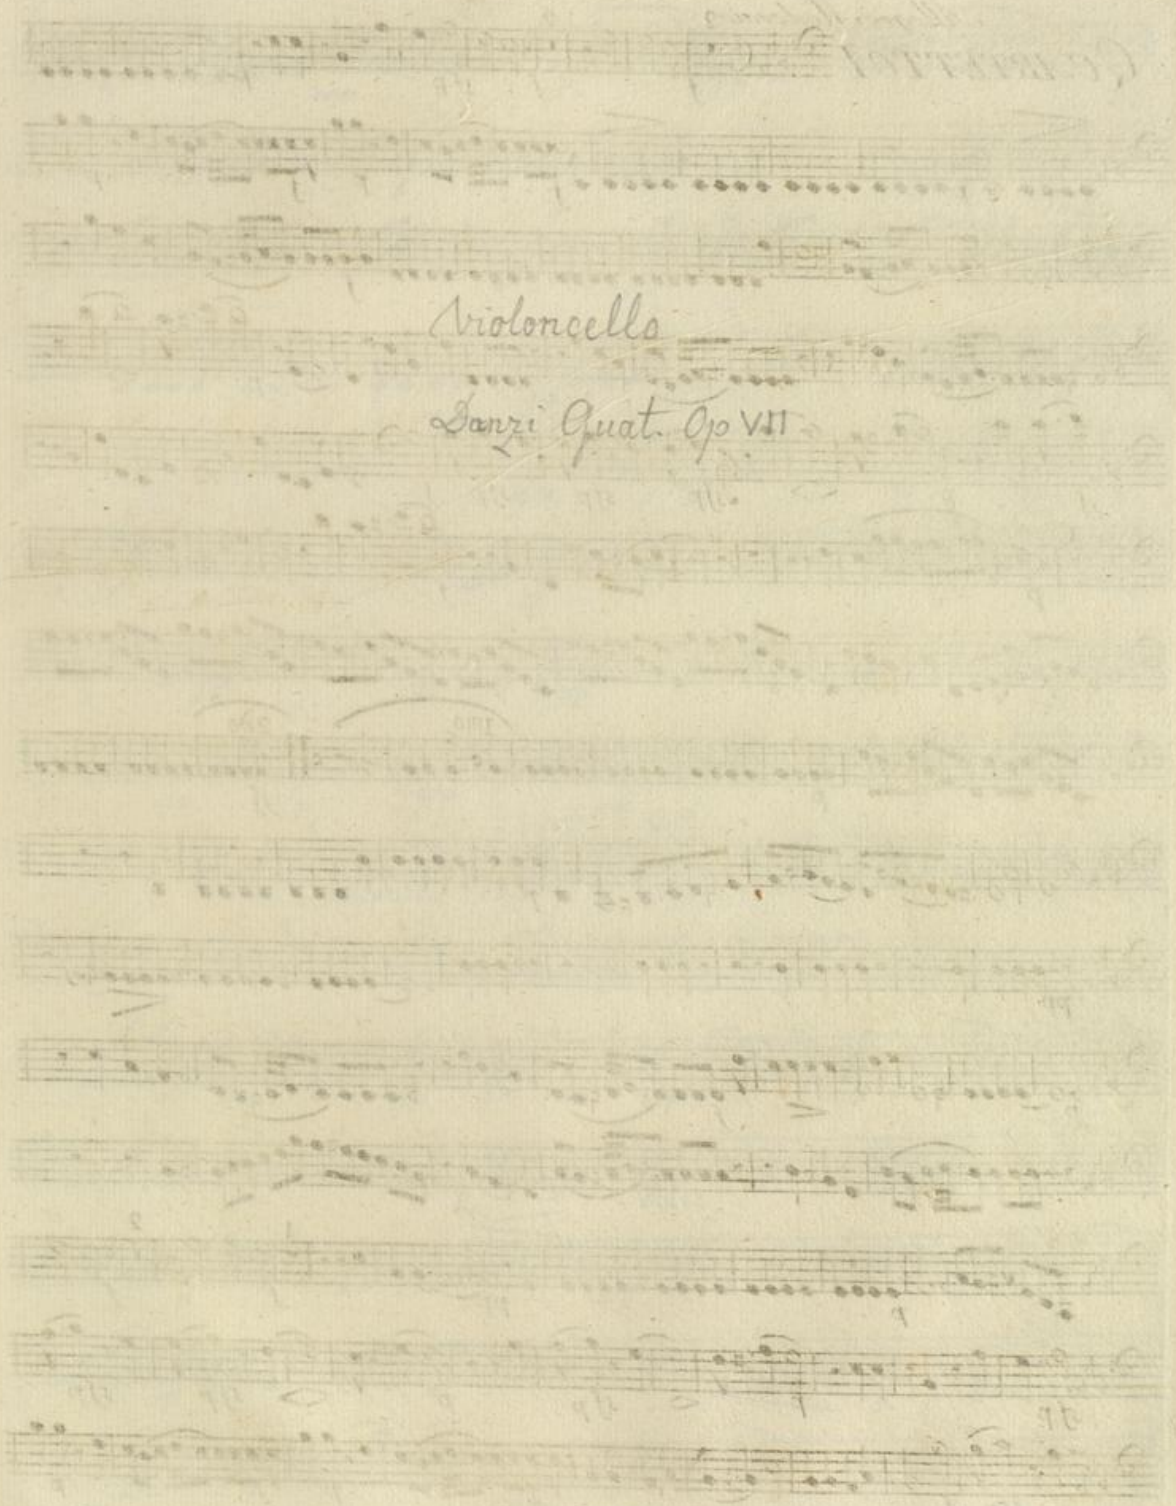 Violoncello
Danzi Quat. Op VII